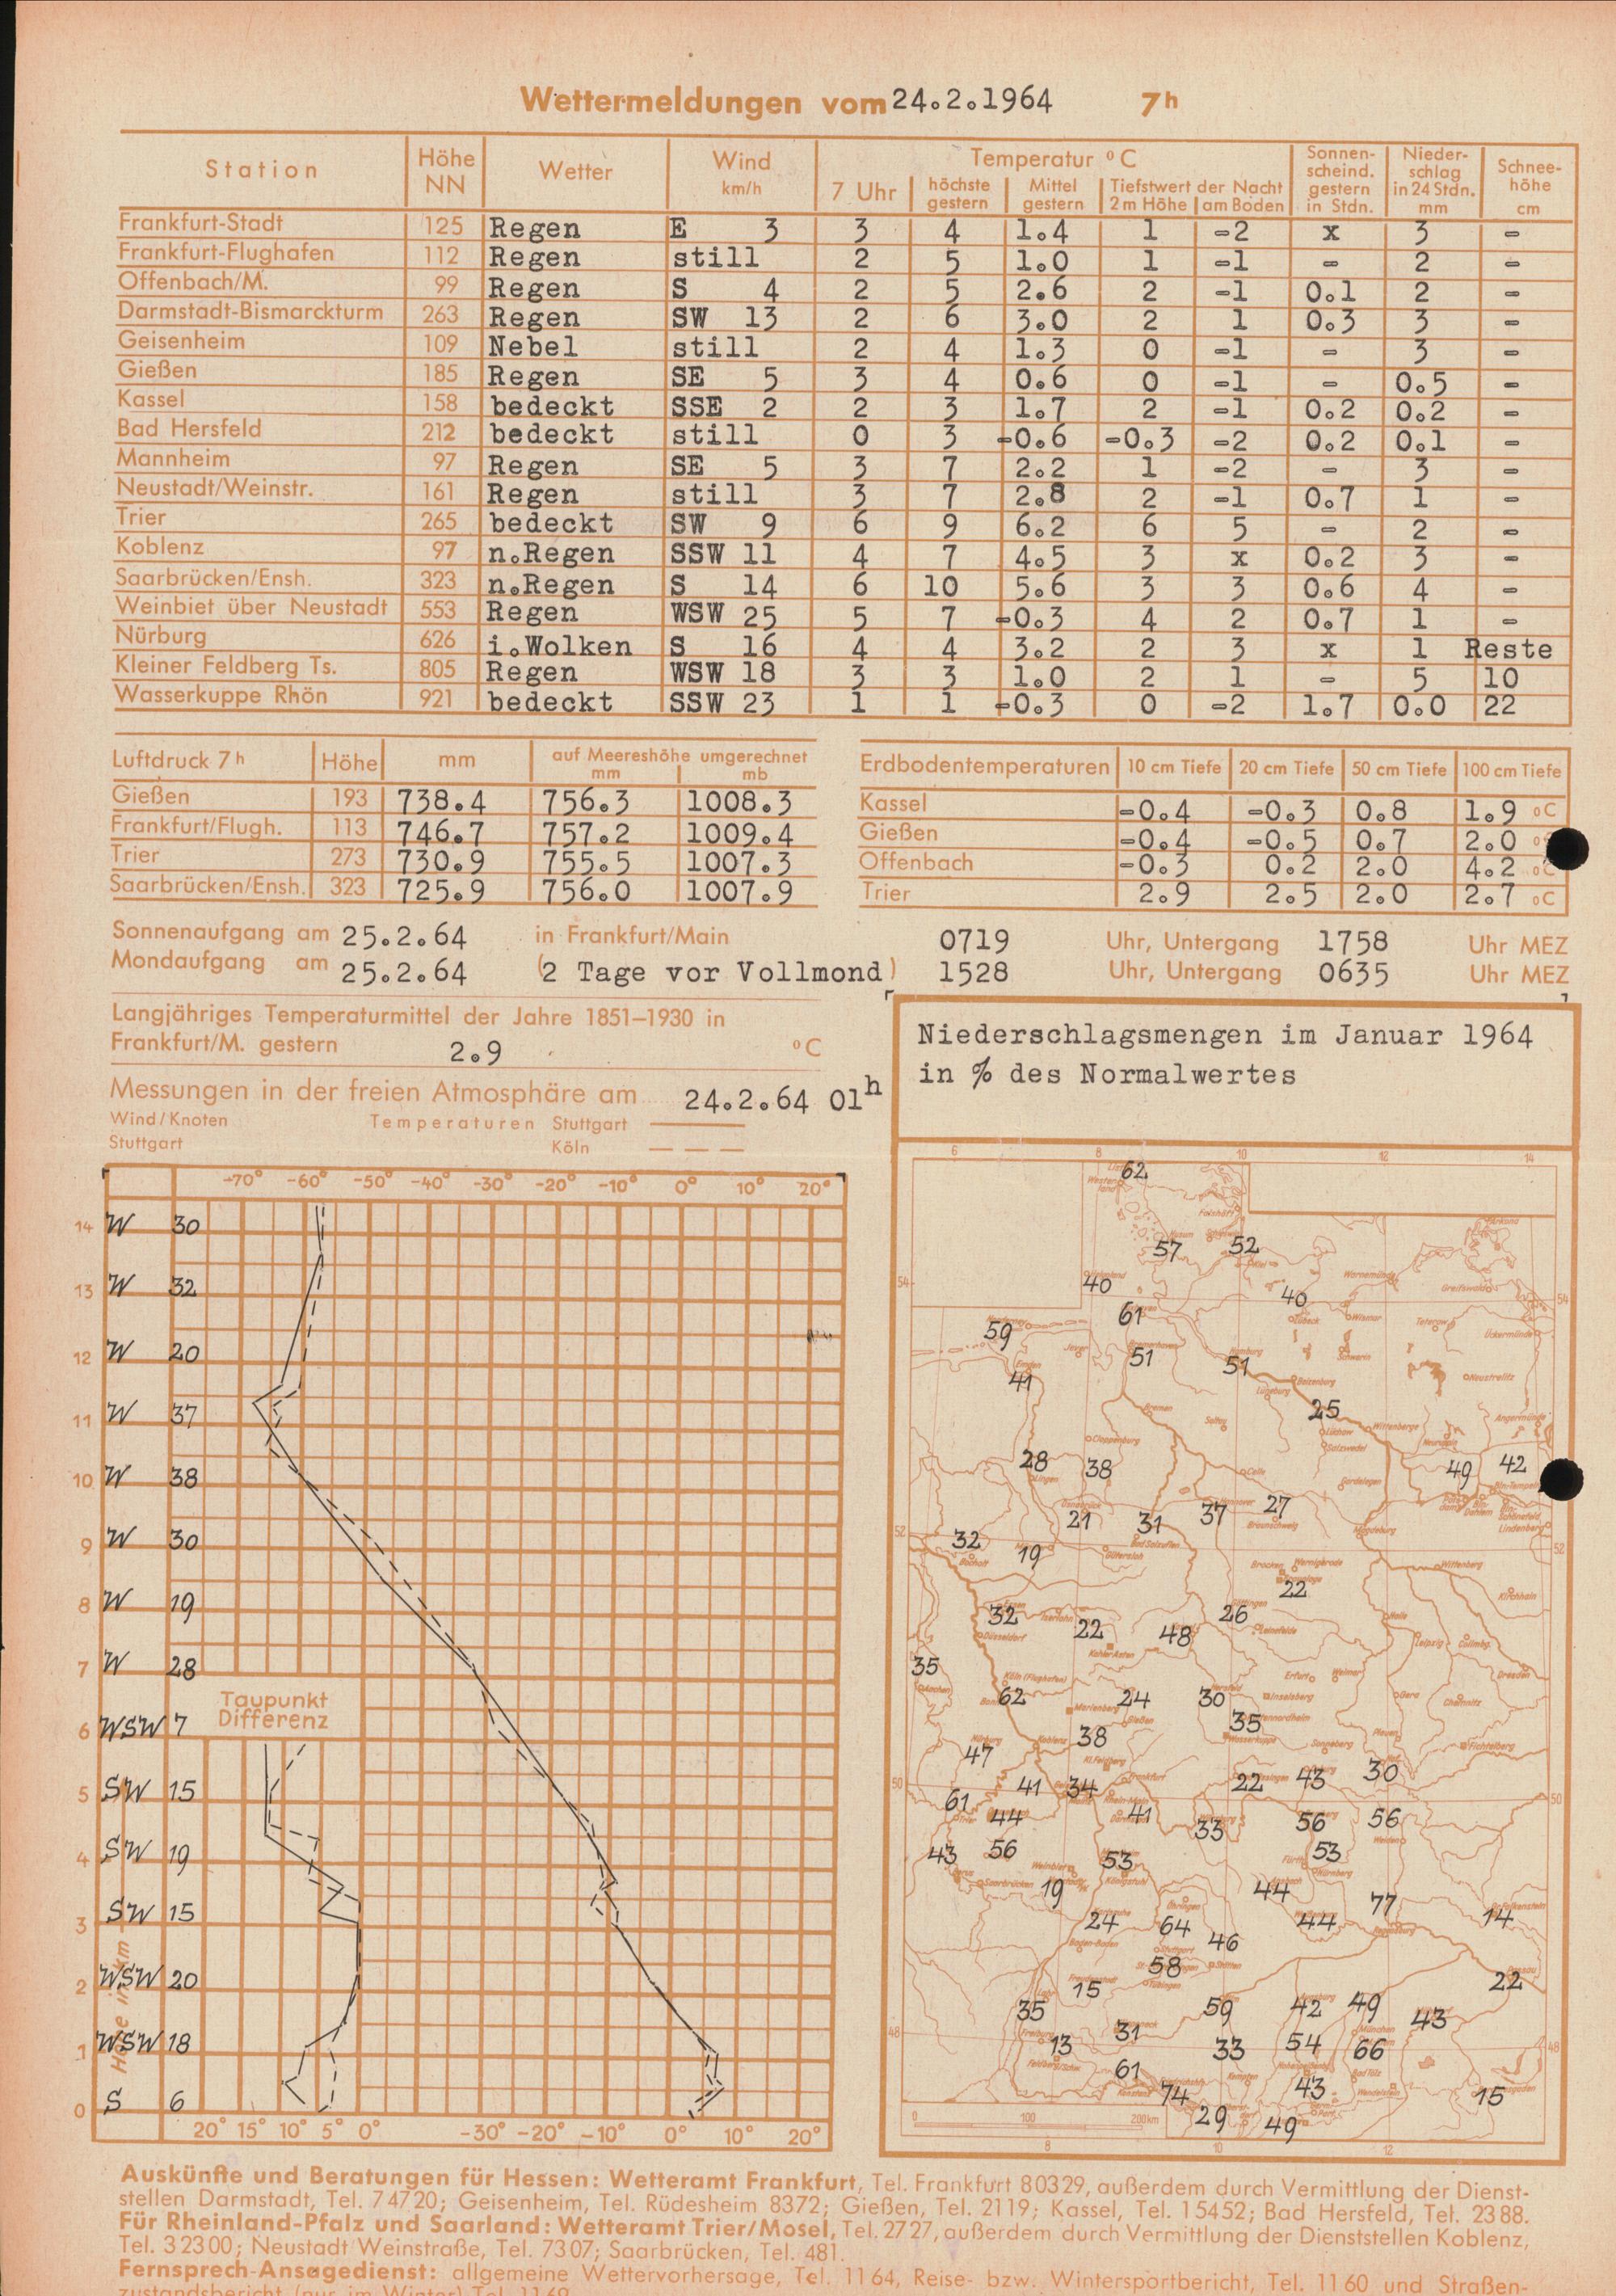 Wettermeldungen vom 24.2.1964 7h
Station Höhe NN Wetter Wind km/h Temperatur °C 7 Uhr höchste gestern Mittel gestern Tiefstwert der Nacht 2m Höhe am Boden Sonnenscheind. gestern in Stdn. Niederschlag in 24 Stdn. mm Schneehöhe cm
Frankfurt-Stadt 125 Regen E 3 3 4 1.4 1 -2 x 3 -
Frankfurt-Flughafen 112 Regen still 2 5 1.0 1 -1 - 2 -
Offenbach/M. 99 Regen S 4 2 5 2.6 2 -1 0.1 2 -
Darmstadt-Bismarckturm 263 Regen SW 13 2 6 3.0 2 1 0.3 3 -
Geisenheim 109 Nebel still 2 4 1.3 0 -1 - 3 -
Gießen 185 Regen SE 5 3 4 0.6 0 -1 - 0.5 -
Kassel 158 bedeckt SSE 2 2 3 1.7 2 -1 0.2 0.2 -
Bad Hersfeld 212 bedeckt still 0 3 -0.6 -0.3 -2 0.2 0.1 -
Mannheim 97 Regen SE 5 3 7 2.2 1 -2 - 3 -
Neustadt/Weinstr. 161 Regen still 3 7 2.8 2 -1 0.7 1 -
Trier 265 bedeckt SW 9 6 9 6.2 6 5 - 2 -
Koblenz 97 n.Regen SSW 11 4 7 4.5 3 x 0.2 3 -
Saarbrücken/Ensh. 323 n.Regen S 14 6 10 5.6 3 3 0.6 4 -
Weinbiet über Neustadt 553 Regen WSW 25 5 7 -0.3 4 2 0.7 1 -
Nürburg 626 i.Wolken S 16 4 4 3.2 2 3 x 1 Reste
Kleiner Feldberg Ts. 805 Regen WSW 18 3 3 1.0 2 1 - 5 10
Wasserkuppe Rhön 921 bedeckt SSW 23 1 1 -0.3 0 -2 1.7 0.0 22
Luftdruck 7h Höhe mm auf Meereshöhe umgerechnet mm mb
Gießen 193 738.4 756.3 1008.3
Frankfurt/Flugh. 113 746.7 757.2 1009.4
Trier 273 730.9 755.5 1007.3
Saarbrücken/Ensh. 323 725.9 756.0 1007.9
Erdbodentemperaturen 10 cm Tiefe 20 cm Tiefe 50 cm Tiefe 100 cm Tiefe
Kassel -0.4 -0.3 0.8 1.9 °C
Gießen -0.4 -0.5 0.7 2.0
Offenbach -0.3 0.2 2.0 4.2 °C
Trier 2.9 2.5 2.0 2.7 °C
Sonnenaufgang am 25.2.64 in Frankfurt/Main 0719 Uhr, Untergang 1758 Uhr MEZ
Mondaufgang am 25.2.64 (2 Tage vor Vollmond) 1528 Uhr, Untergang 0635 Uhr MEZ
Langjähriges Temperaturmittel der Jahre 1851–1930 in
Frankfurt/M. gestern 2.9 °C
Messungen in der freien Atmosphäre am 24.2.64 01h
Wind/Knoten Temperaturen Stuttgart
Stuttgart Köln
-70° -60° -50° -40° -30° -20° -10° 0° 10° 20°
14 W 30
13 W 32
12 W 20
11 W 37
10 W 38
9 W 30
8 W 19
7 W 28
Taupunkt
Differenz
6 WSW 7
5 SW 15
4 SW 19
3 SW 15
2 WSW 20
1 WSW 18
0 S 6
Höhe in km
20° 15° 10° 5° 0° -30° -20° -10° 0° 10° 20°
Niederschlagsmengen im Januar 1964
in % des Normalwertes
6 8 10 12 14
62
57 52
54 40 40 54
61
59
51 51
41
25
28 38 49 42
21 31 37 27
52 32 19 52
22
32 22 48 26
35
62 24 30
35
47 38
50 41 34 22 43 30 50
61 44 41 33 56 56
43 56 53 53
19 44 77 14
24 64 44
46
58
15 22
35 59 42 49 43
48 13 31 33 54 66 48
61 43
74 15
29 49
0 100 200km
8 10 12
Auskünfte und Beratungen für Hessen: Wetteramt Frankfurt, Tel. Frankfurt 80329, außerdem durch Vermittlung der Dienst-
stellen Darmstadt, Tel. 74720; Geisenheim, Tel. Rüdesheim 8372; Gießen, Tel. 2119; Kassel, Tel. 15452; Bad Hersfeld, Tel. 2388.
Für Rheinland-Pfalz und Saarland: Wetteramt Trier/Mosel, Tel. 2727, außerdem durch Vermittlung der Dienststellen Koblenz,
Tel. 32300; Neustadt Weinstraße, Tel. 7307; Saarbrücken, Tel. 481.
Fernsprech-Ansagedienst: allgemeine Wettervorhersage, Tel. 1164, Reise- bzw. Wintersportbericht, Tel. 1160 und Straßen-
zustandsbericht (nur im Winter) Tel. 1169